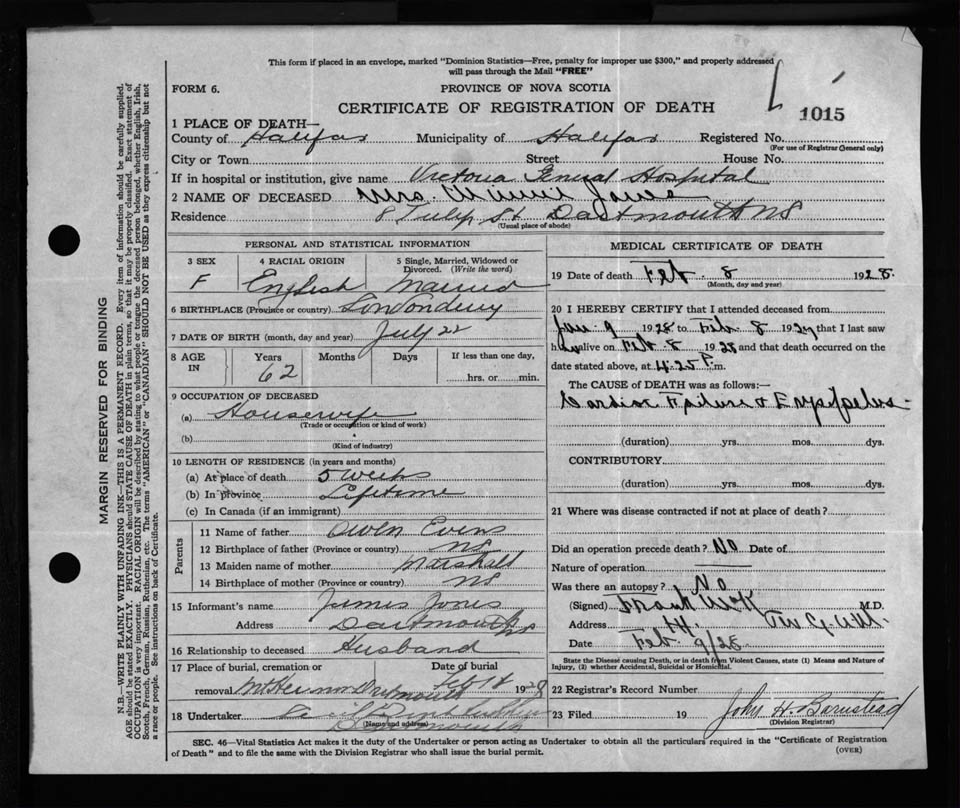 This form if placed in an envelope, marked "Dominion Statistics—Free, penalty for improper use $300," and properly addressed
will pass through the Mail "FREE"
FORM 6.
PROVINCE OF NOVA SCOTIA
CERTIFICATE OF REGISTRATION OF DEATH
1015
1 PLACE OF DEATH—
County of Halifax Municipality of Halifax Registered No.
(For use of Registrar General only)
City or Town Street House No.
If in hospital or institution, give name Victoria General Hospital
2 NAME OF DECEASED Mrs. Minnie Jones
Residence 8 Tulip St Dartmouth NS
(Usual place of abode)
PERSONAL AND STATISTICAL INFORMATION
3 SEX F
4 RACIAL ORIGIN English
5 Single, Married, Widowed or Divorced. (Write the word) Married
6 BIRTHPLACE (Province or country) Londonderry
7 DATE OF BIRTH (month, day and year) July 22
8 AGE IN Years 62 Months Days If less than one day, hrs. or min.
9 OCCUPATION OF DECEASED
(a) Housewife
(Trade or occupation or kind of work)
(b)
(Kind of industry)
10 LENGTH OF RESIDENCE (in years and months)
(a) At place of death 5 weeks
(b) In province Lifetime
(c) In Canada (if an immigrant)
Parents
11 Name of father Owen Evens
12 Birthplace of father (Province or country) NS
13 Maiden name of mother Marshall
14 Birthplace of mother (Province or country) NS
15 Informant's name James Jones
Address Dartmouth NS
16 Relationship to deceased Husband
17 Place of burial, cremation or Date of burial
removal Mt Hermon Dartmouth Feb 1928
18 Undertaker
(Name and address)
Dartmouth
MEDICAL CERTIFICATE OF DEATH
19 Date of death Feb. 8 1928.
(Month, day and year)
20 I HEREBY CERTIFY that I attended deceased from
Jan 9 1928 to Feb 8 192 that I last saw
h alive on Feb 8 1928 and that death occurred on the
date stated above, at 4.25 P. m.
The CAUSE OF DEATH was as follows:—
Cardiac Failure & Erysipelas
(duration) yrs. mos. dys.
CONTRIBUTORY
(duration) yrs. mos. dys.
21 Where was disease contracted if not at place of death?
Did an operation precede death? No Date of
Nature of operation
Was there an autopsy? No
(Signed) Frank M.D.
Address
Date Feb. 9/28
State the Disease causing Death, or in death from Violent Causes, state (1) Means and Nature of
Injury, (2) whether Accidental, Suicidal or Homicidal.
22 Registrar's Record Number
23 Filed 19 John H. Barnstead
(Division Registrar)
SEC. 46—Vital Statistics Act makes it the duty of the Undertaker or person acting as Undertaker to obtain all the particulars required in the "Certificate of Registration
of Death" and to file the same with the Division Registrar who shall issue the burial permit.
(OVER)
MARGIN RESERVED FOR BINDING
N.B.—WRITE PLAINLY WITH UNFADING INK—THIS IS A PERMANENT RECORD. Every item of information should be carefully supplied.
AGE should be stated EXACTLY. PHYSICIANS should STATE CAUSE OF DEATH in plain terms, so that it may be properly classified. Exact statement of
OCCUPATION is very important. RACIAL ORIGIN will be described by stating to what people or tongue the deceased person belonged, whether English, Irish,
Scotch, French, German, Russian, Ruthenian, etc. The terms "AMERICAN" or "CANADIAN" SHOULD NOT BE USED as they express citizenship but not
a race or people. See instructions on back of Certificate.